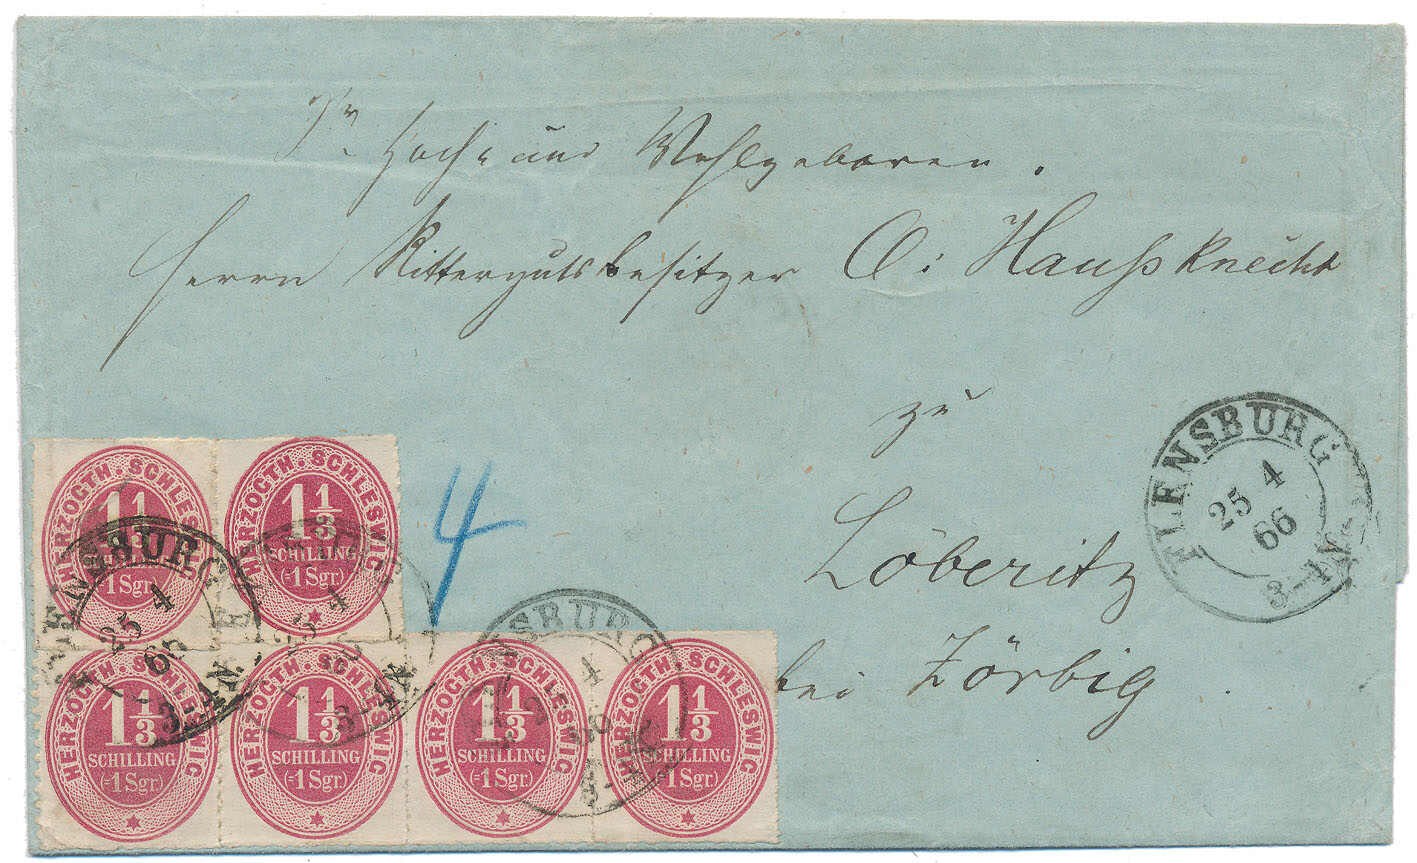 Sr Hoch, und Wohlgeboren.
Herrn Rittergutsbesitzer O: Haußknecht
zu
Löberitz
bei Zörbig.
4
FLENSBURG
25 4
66
3-4N.
HERZOGTH. SCHLESWIG
1 1/3
SCHILLING
(=1 Sgr.)
HERZOGTH. SCHLESWIG
1 1/3
SCHILLING
(=1 Sgr.)
FLENSBURG
25 4
66
3-4N.
HERZOGTH. SCHLESWIG
1 1/3
SCHILLING
(=1 Sgr.)
HERZOGTH. SCHLESWIG
1 1/3
SCHILLING
(=1 Sgr.)
HERZOGTH. SCHLESWIG
1 1/3
SCHILLING
(=1 Sgr.)
HERZOGTH. SCHLESWIG
1 1/3
SCHILLING
(=1 Sgr.)